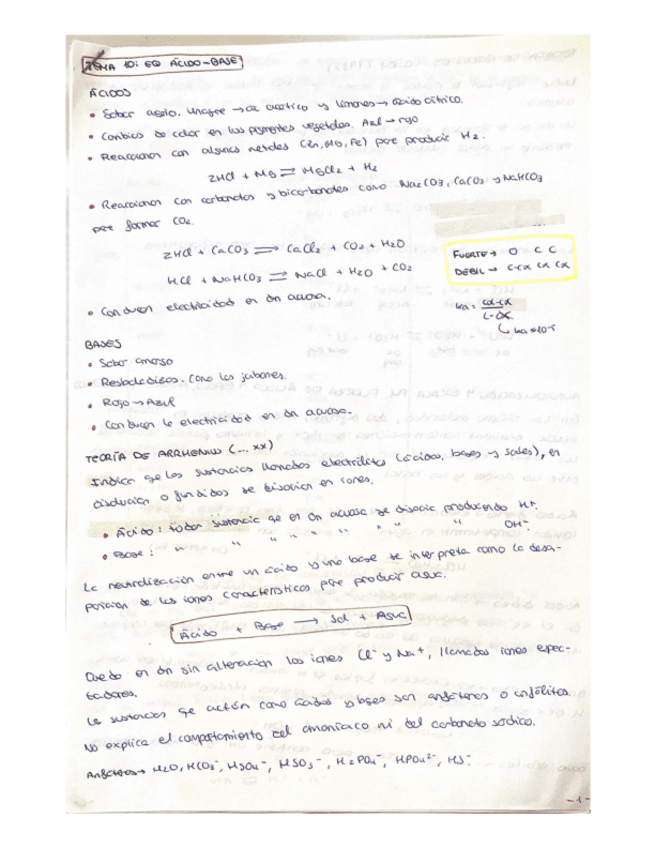 TEMA 10: EQ ÁCIDO-BASE
ÁCIDOS
• Sabor agrio. Vinagre → ác acético y limones → ácido cítrico.
• Cambios de color en los pigmentos vegetales. Azul → rojo
• Reaccionan con algunos metales (Zn, Mg, Fe) para producir H2.
2HCl + Mg ⇌ MgCl2 + H2
• Reaccionan con carbonatos y bicarbonatos como Na2CO3, CaCO3 y NaHCO3
para formar CO2.
2HCl + CaCO3 ⇌ CaCl2 + CO2 + H2O
HCl + NaHCO3 ⇌ NaCl + H2O + CO2
• Conducen electricidad en dn acuosa.
FUERTE → O C C
DÉBIL → C-Cα Cα Cα
Ka = Cα·Cα
C-Cα
BASES
• Sabor amargo
• Resbaladizos. Como los jabones.
• Rojo → Azul
• Conducen la electricidad en dn acuosa.
TEORÍA DE ARRHENIUS (... XX)
Indica qe las sustancias llamadas electrolitos (ácidos, bases y sales), en
disolución o fundidos se disocian en iones.
• Ácido: toda sustancia qe en dn acuosa se disocia produciendo H+.
• Base: " " " " " " " " " OH-
La neutralización entre un ácido y una base se interpreta como la desa-
parición de los iones característicos para producir agua.
Ácido + Base → Sal + Agua
Quedo en dn sin alteración los iones Cl- y Na+, llamados iones espec-
tadores.
Las sustancias qe actúan como ácidos y bases son anfóteros o anfólitos.
No explica el comportamiento del amoníaco ni del carbonato sódico.
Anfóteros → H2O, HCO3-, HSO4-, HSO3-, H2PO4-, HPO4 2-, HS-.
-1-